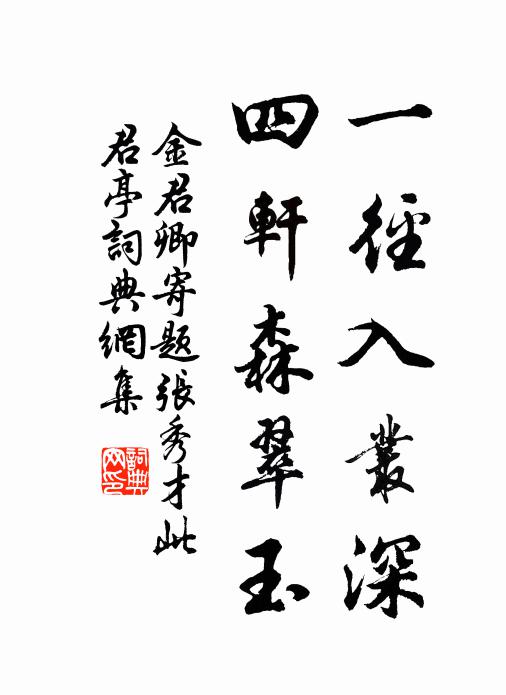 一徑入叢深
四軒森翠玉
金君卿寄題張秀才此
君亭詞典網集
詞典网印